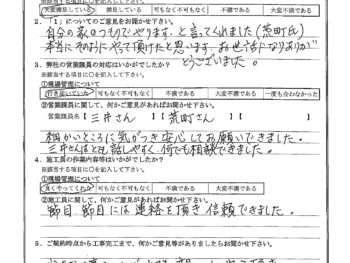 ※該当する項目に○を記入して下さい。
大変満足している 満足している 可もなく不可もなく 不満である 大変不満である
2.「1」についてのご意見をお聞かせ下さい。
自分の家のつもりでやります。と言ってくれました(荒町氏)
本当にそのようにやって頂けたと思います。お世話になりありがとう
ございました。
3. 弊社の営業員の対応はいかがでしたか?
※該当する項目に○を記入して下さい。
①現場管理について
行き届いていた 可もなく不可もなく 不満である 大変不満である 一度も会わなかった
②営業課員に関して、何かご意見があればお聞かせ下さい。
営業課員名【三井さん 】【荒町さん 】【 】
細かいところに気がつき安心してお願いできました。
三井さんはとても話しやすく何でも相談できました。
4. 施工員の作業内容等はいかがでしたか?
※該当する項目に○を記入して下さい。
①現場管理について
良くやってくれた 可もなく不可もなく 不満である 大変不満である
②施工員に関して、何かご意見があればお聞かせ下さい。
節目節目には連絡を頂き信頼できました。
5. ご契約時点から工事完工まで、何かご意見等がありましたらお聞かせ下さい。